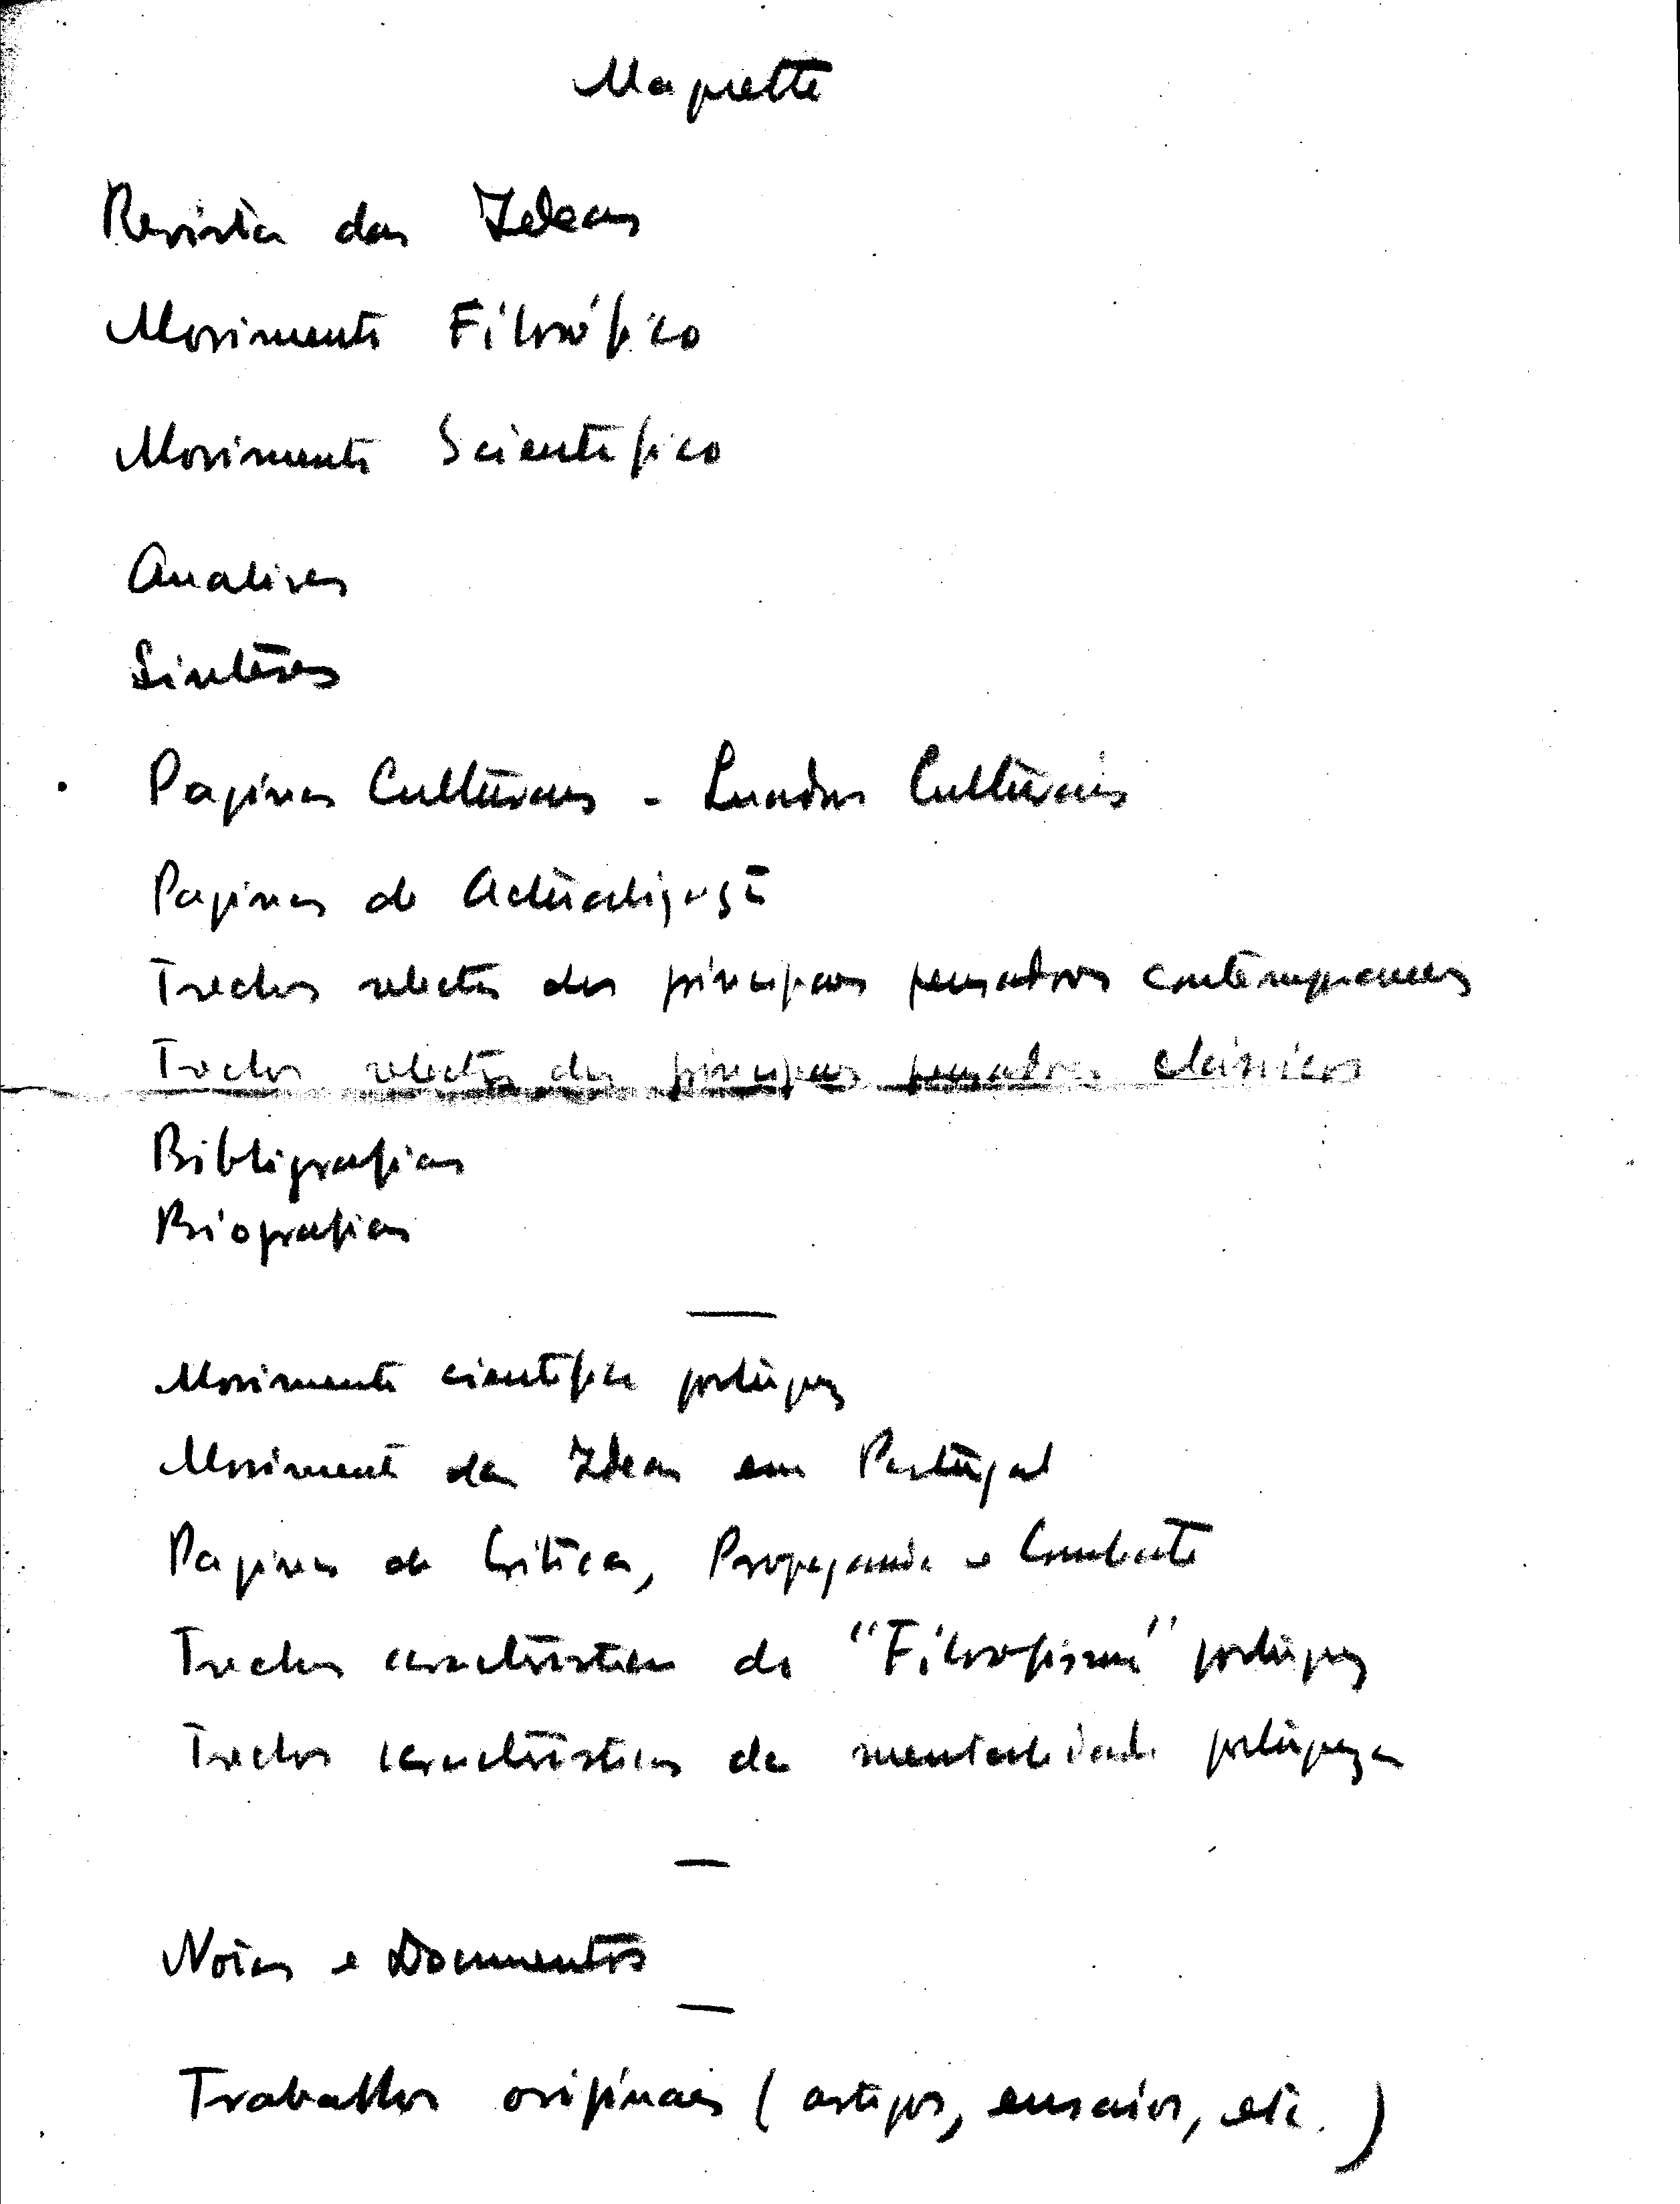 Maquette
Revista das Ideas
Movimento Filosófico
Movimento Scientifico
Analises
Sinteses
Paginas Culturaes - Quadros Culturais
Paginas de Actualização
Trechos selectos dos principaes pensadores contemporaneos
Trechos selectos dos principaes pensadores clássicos
Bibliografias
Biografias
—
Movimento cientifico portuguez
Movimento das Ideas em Portugal
Paginas de Critica, Propaganda e Combate
Trechos caracteristicos do "Filosofismo" portuguez
Trechos caracteristicos da mentalidade portugueza
—
Notas e Documentos
—
Trabalhos originaes (artigos, ensaios, etc.)